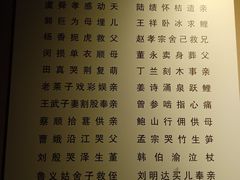 虞舜孝感动天 陆绩怀桔遗亲
郭巨为母埋儿 王祥卧冰求鲤
杨香扼虎救父 赵孝宗舍己救兄
闵损单衣顺母 董永卖身葬父
田真哭荆复萌 丁兰刻木事亲
老莱子戏彩娱亲 姜诗涌泉跃鲤
王武子妻割股奉亲 曾参啮指心痛
蔡顺拾葚供亲 鲍山行佣供母
曹娥沿江哭父 孟宗哭竹生笋
刘殷哭泽生堇 韩伯渝泣杖
鲁义姑舍子救侄 刘明达买儿奉亲